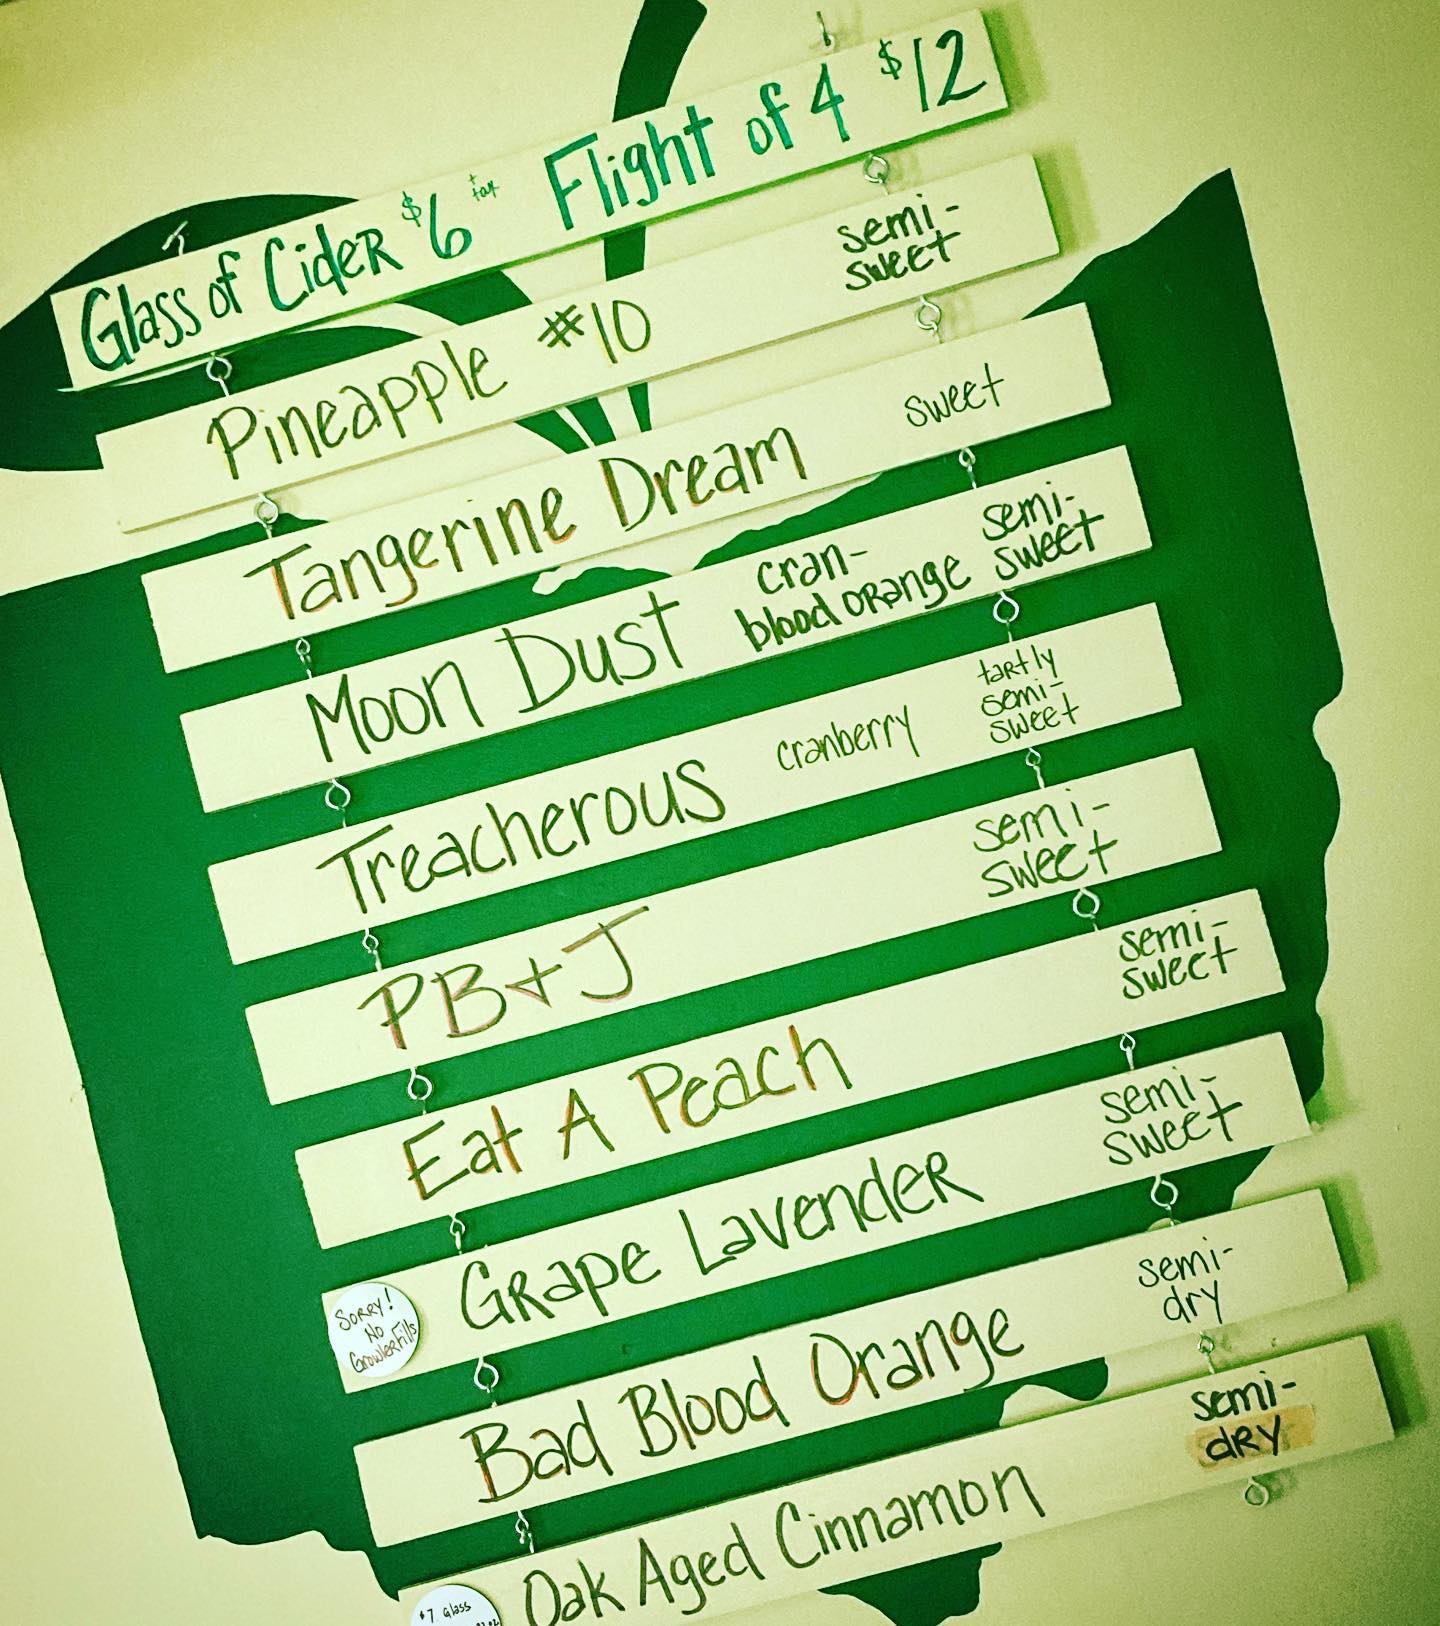 Glass of Cider $6 + tax Flight of 4 $12
Pineapple #10 semi-
sweet
Tangerine Dream sweet
Moon Dust cran-
blood orange semi-
sweet
Treacherous cranberry tartly
semi-
sweet
PB+J semi-
sweet
Eat A Peach semi-
sweet
Grape Lavender semi-
sweet
Sorry!
No
Growler Fills
Bad Blood Orange semi-
dry
Oak Aged Cinnamon semi-
dry
$7 Glass